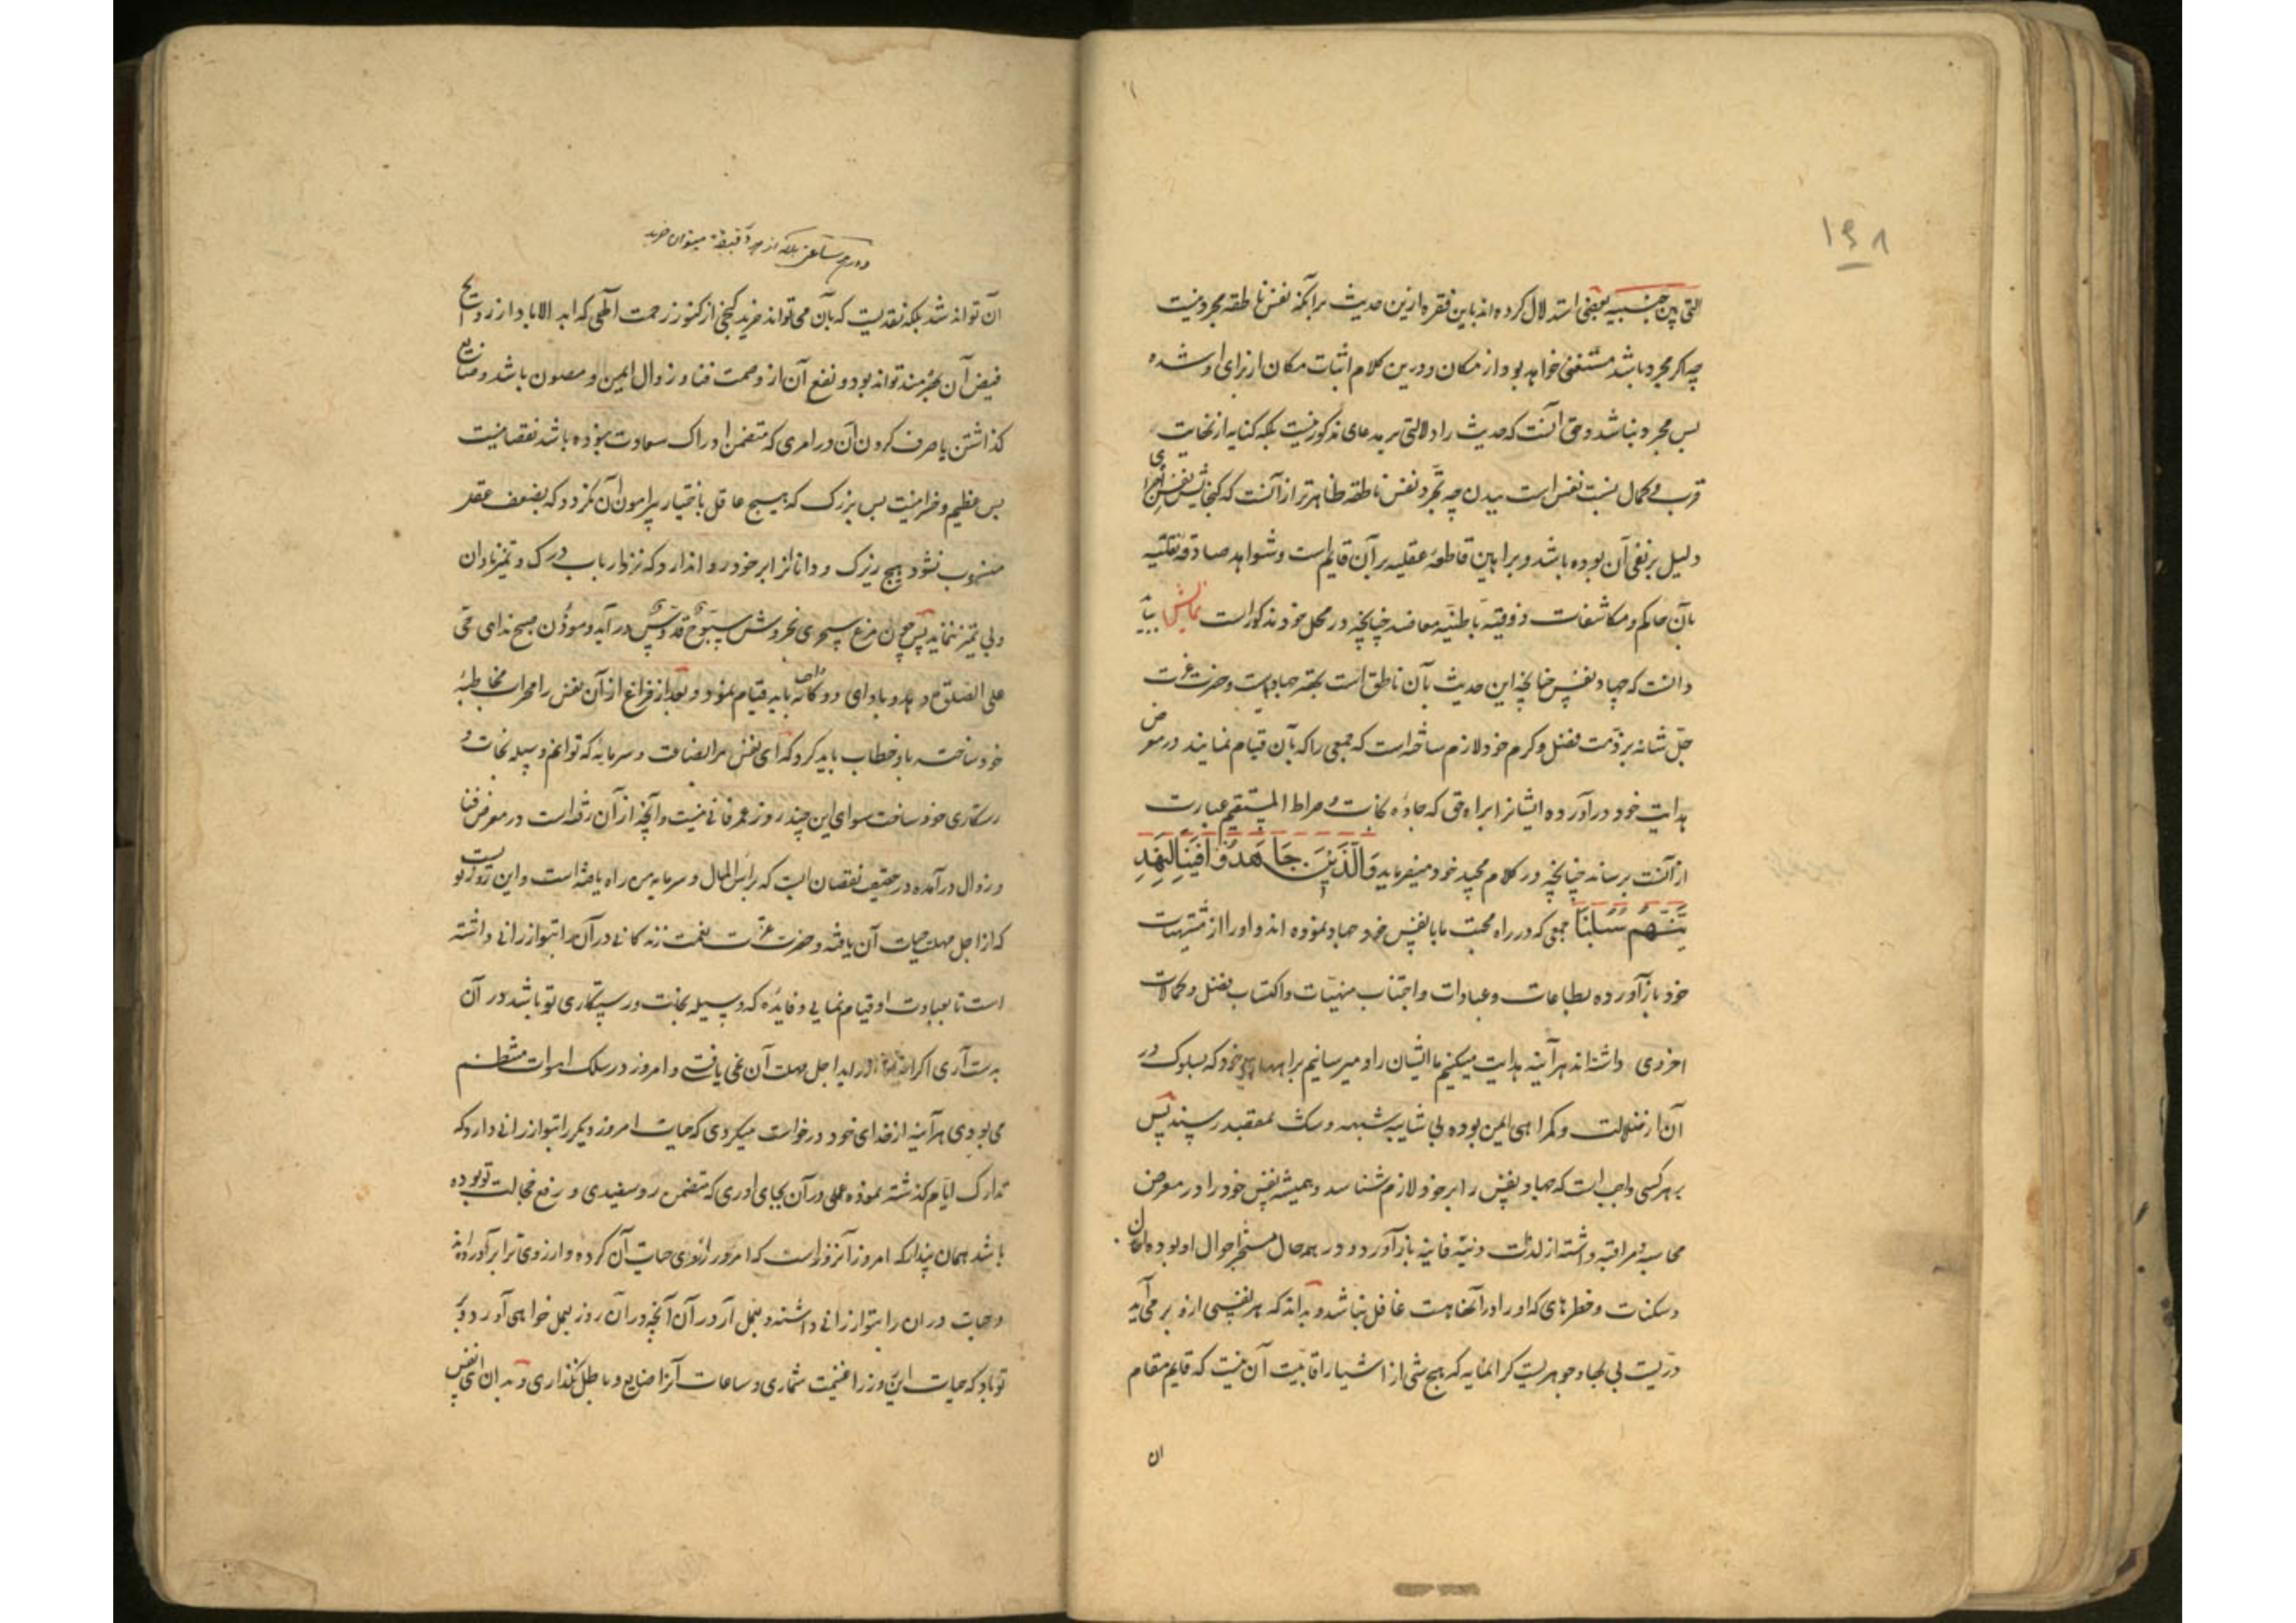 ۱۶۸
التی بین جنبیه بعضی استدلال کرده اند باین فقره ازین حدیث برآنکه نفس ناطقه مجرد نیست
چه اگر مجرد باشد مستغنی خواهد بود از مکان و درین کلام اثبات مکان از برای او شده
پس مجرد نباشد و حق آنست که حدیث را دلالتی بر مدعای مذکور نیست بلکه کنایه از نهایت
قرب و کمال نسبت نفس است ببدن چه تجرد نفس ناطقه ظاهرتر از آنست که گنجایش
دلیل بر نفی آن بوده باشد و براهین قاطعهٔ عقلیه بر آن قایم است و شواهد صادقه نقلیه
بآن حاکم و مکاشفات ذوقیه باطنیه معاضد چنانچه در محل خود مذکور است نمایش
دانست که جهاد نفس چنانچه این حدیث بآن ناطق است بهتر جهادیست و حضرت عزت
جل شانه بر ذمت فضل و کرم خود لازم ساخته است که جمعی را که بآن قیام نمایند در معرض
هدایت خود درآورده ایشانرا براه حق که جادهٔ نجات و صراط المستقیم عبارت
از آنست برساند چنانچه در کلام مجید خود میفرماید وَالَّذِینَ جَاهَدُوا فِینَا لَنَهْدِ
یَنَّهُمْ سُبُلَنَا جمعی که در راه محبت ما با نفس خود جهاد نموده اند و او را از مشتهیات
خود بازآورده بطاعات و عبادات و اجتناب منهیات و اکتساب فضل و کمالات
اخروی داشته اند هرآینه هدایت میکنیم ما ایشان را و میرسانیم براههای خود که بسلوک در
آن از ضلالت و گمراهی ایمن بوده بی شایبه شبهه و شک بمقصد رسند پس
بر هر کسی واجب است که جهاد نفس را بر خود لازم شناسد و همیشه نفس خود را در معرض
محاسبه و مراقبه داشته از لذات دنیه فانیه بازآورد و در همه حال مستخبر احوال او بوده از
و سکنات و خطرهای که او را در آنها هست غافل نباشد و بداند که هر نفسی ازو بر می آید
دریست بی بها و جوهریست گرانمایه که هیچ شی از اشیا را قابلیت آن نیست که قایم مقام
ان
دو ساعت بلکه از هر دقیقه میتوان خرید
آن تواند شد بلکه نقدیست که بآن می تواند خرید گنجی از کنوز رحمت الهی که ابد الاباد از
فیض آن بهره مند تواند بود و نفع آن از وصمت فنا و زوال ایمن و مصون باشد و ضایع
گذاشتن یا صرف کردن آن در امری که متضمن ادراک سعادت نبوده باشد نقصانیست
بس عظیم و خسرانیست بس بزرک که هیچ عاقل باختیار پیرامون آن نگردد که بضعف عقل
منسوب نشود و هیچ زیرک و دانا آنرا بر خود روا ندارد که نزد ارباب درک و تمیز نادان
و بی تمیز ننماید پس چون مرغ سحری بخروش سبوح قدوس درآید و موذن صبح ندای حی
علی الصلوة در دهد و باداى دوگانه باید قیام نمود و بعد از فراغ از آن نفس را محراب مخاطبهٔ
خود ساخت باو خطاب باید کرد که ای نفس مرا بضاعت و سرمایه که توانم وسیله نجات و
رستگاری خود ساخت سوای این چند روز عمر فانی نیست و آنچه از آن رفته است در معرض فنا
و زوال درآمده در حقیقت نقصان است که برأس المال و سرمایه من راه یافته است و این روز نو
که از اجل مهلت حیات آن یافته و حضرت عزت نعمت زندگانی در آن را بتو ارزانی داشته
است تا بعبادت او قیام نمایی و فایده که وسیله نجات و رستگاری تو باشد در آن
بدست آری اگر از اجل مهلت آن نمی یافتی و امروز در سلک اموات منتظم
می بودی هرآینه از خدای خود درخواست میکردی که حیات امروز دیگر را بتو ارزانی دارد که
تدارک ایام گذشته نموده عملی در آن بجای اوری که متضمن روسفیدی و رفع خجالت تو بوده
باشد همان پندار که امروز آنروز است که آرزوی حیات آن کرده و ارزوی ترا برآورده اند
و حیات در ان را بتو ارزانی داشته و بعمل آر در آن آنچه در آن روز بعمل خواهی آورد و
تو باد که حیات این روز را غنیمت شماری و ساعات آنرا ضایع و باطل نگذاری و بدان ای نفس